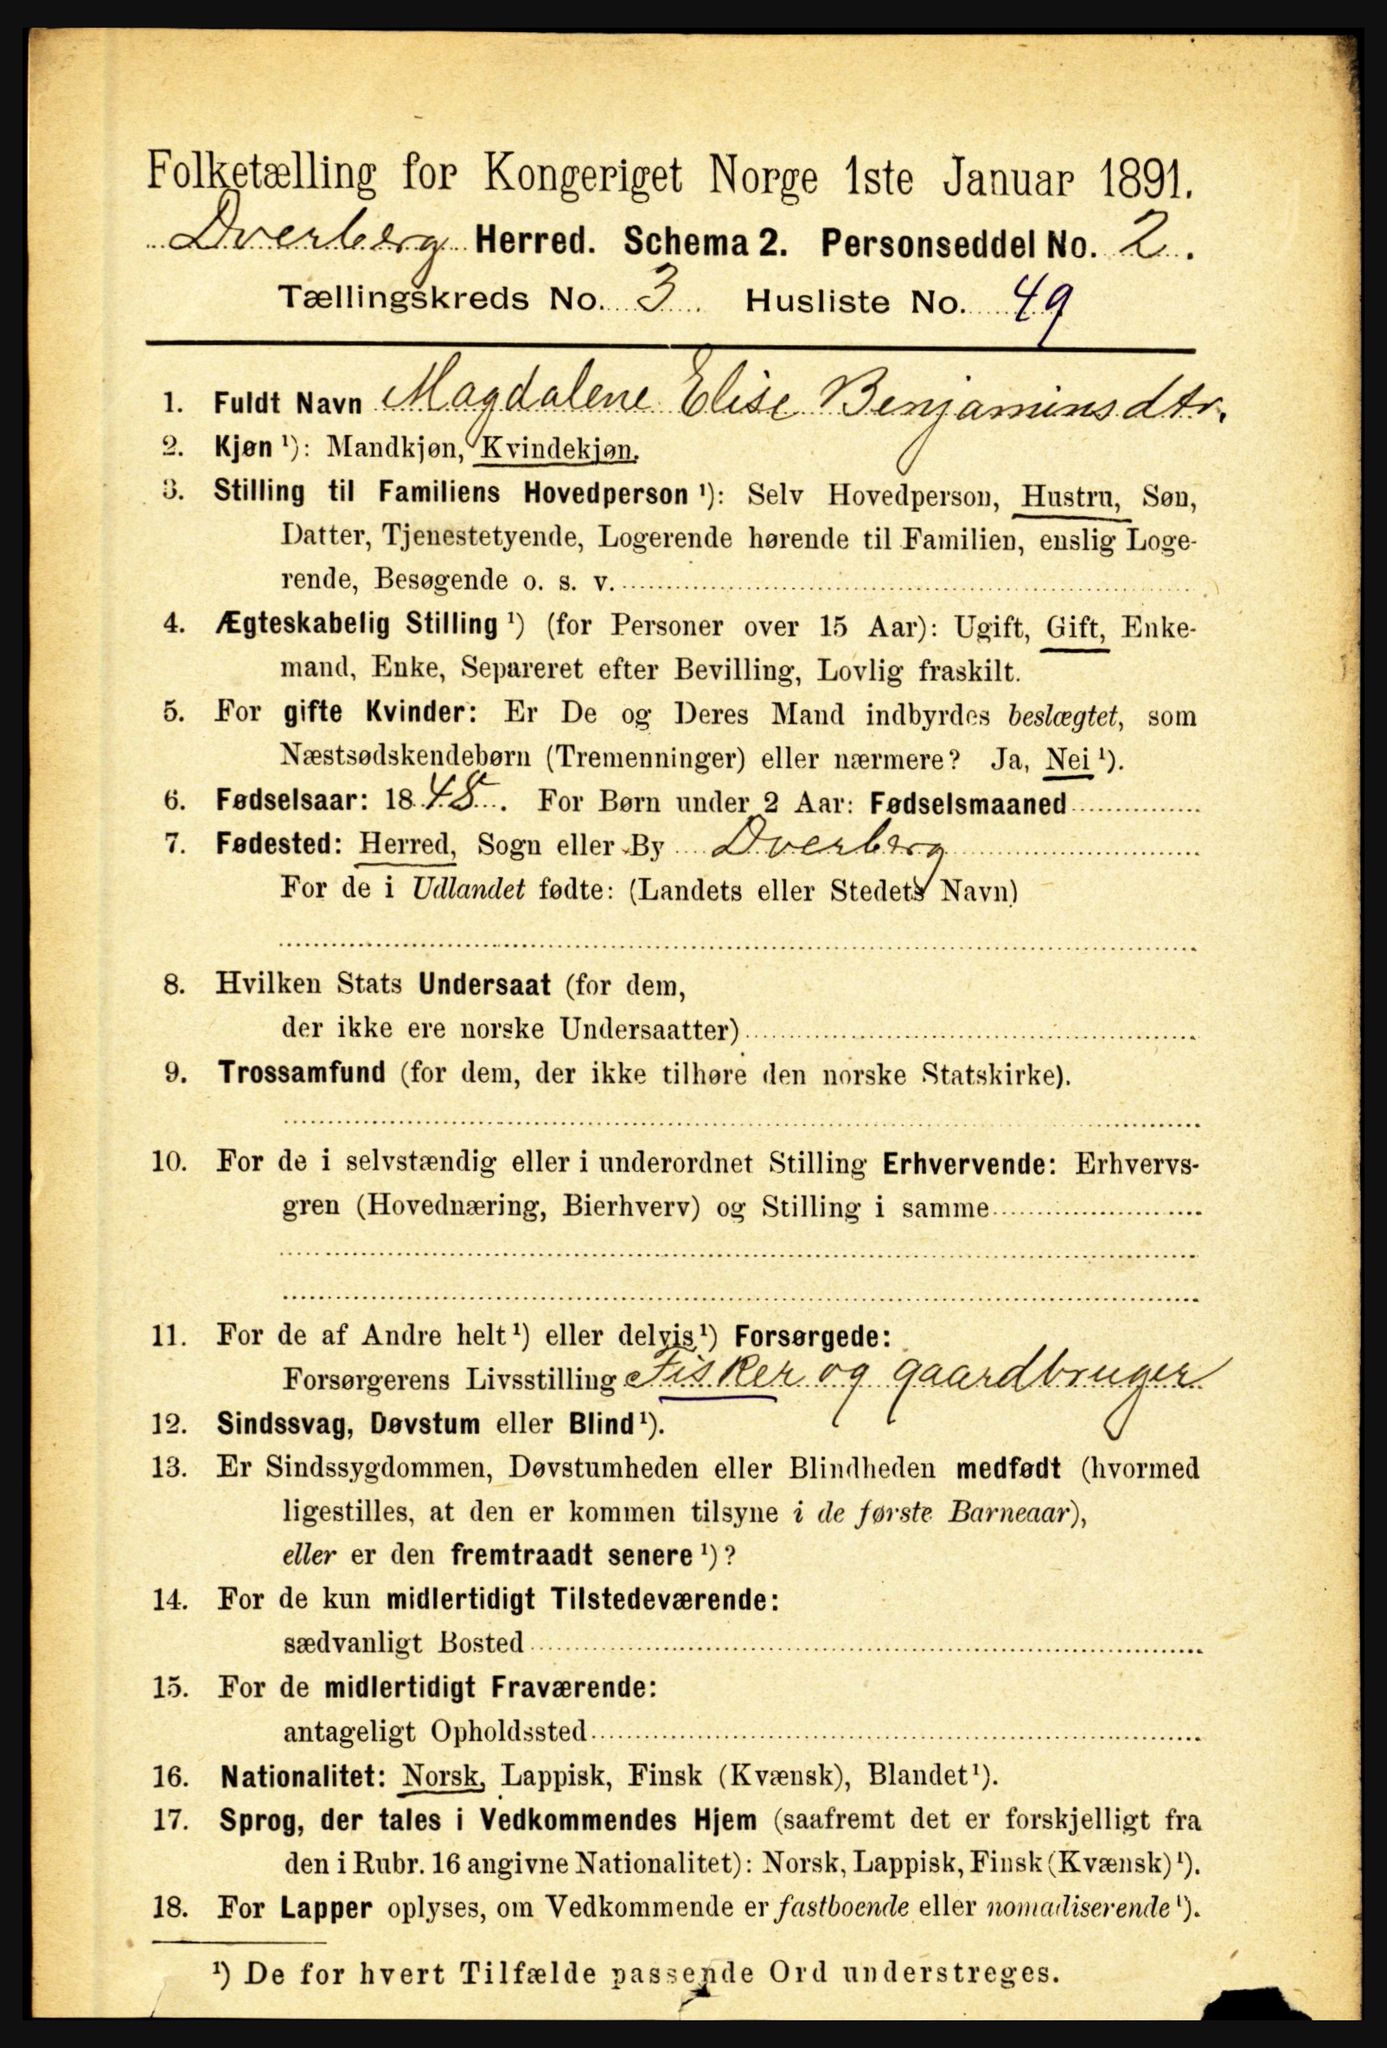 Folketælling for Kongeriget Norge 1ste Januar 1891.
Dverberg Herred. Schema 2. Personseddel No. 2.
Tællingskreds No. 3. Husliste No. 49
1. Fuldt Navn Magdalene Elise Benjaminsdtr.
2. Kjøn ¹): Mandkjøn, Kvindekjøn.
3. Stilling til Familiens Hovedperson ¹): Selv Hovedperson, Hustru, Søn,
Datter, Tjenestetyende, Logerende hørende til Familien, enslig Loge-
rende, Besøgende o. s. v.
4. Ægteskabelig Stilling ¹) (for Personer over 15 Aar): Ugift, Gift, Enke-
mand, Enke, Separeret efter Bevilling, Lovlig fraskilt.
5. For gifte Kvinder: Er De og Deres Mand indbyrdes beslægtet, som
Næstsødskendebørn (Tremenninger) eller nærmere? Ja, Nei ¹).
6. Fødselsaar: 1848. For Børn under 2 Aar: Fødselsmaaned
7. Fødested: Herred, Sogn eller By Dverberg
For de i Udlandet fødte: (Landets eller Stedets Navn)
8. Hvilken Stats Undersaat (for dem,
der ikke ere norske Undersaatter)
9. Trossamfund (for dem, der ikke tilhøre den norske Statskirke).
10. For de i selvstændig eller i underordnet Stilling Erhvervende: Erhvervs-
gren (Hovednæring, Bierhverv) og Stilling i samme
11. For de af Andre helt ¹) eller delvis ¹) Forsørgede:
Forsørgerens Livsstilling Fisker og gaardbruger
12. Sindssvag, Døvstum eller Blind ¹).
13. Er Sindssygdommen, Døvstumheden eller Blindheden medfødt (hvormed
ligestilles, at den er kommen tilsyne i de første Barneaar),
eller er den fremtraadt senere ¹)?
14. For de kun midlertidigt Tilstedeværende:
sædvanligt Bosted
15. For de midlertidigt Fraværende:
antageligt Opholdssted
16. Nationalitet: Norsk, Lappisk, Finsk (Kvænsk), Blandet ¹).
17. Sprog, der tales i Vedkommendes Hjem (saafremt det er forskjelligt fra
den i Rubr. 16 angivne Nationalitet): Norsk, Lappisk, Finsk (Kvænsk) ¹).
18. For Lapper oplyses, om Vedkommende er fastboende eller nomadiserende ¹).
¹) De for hvert Tilfælde passende Ord understreges.